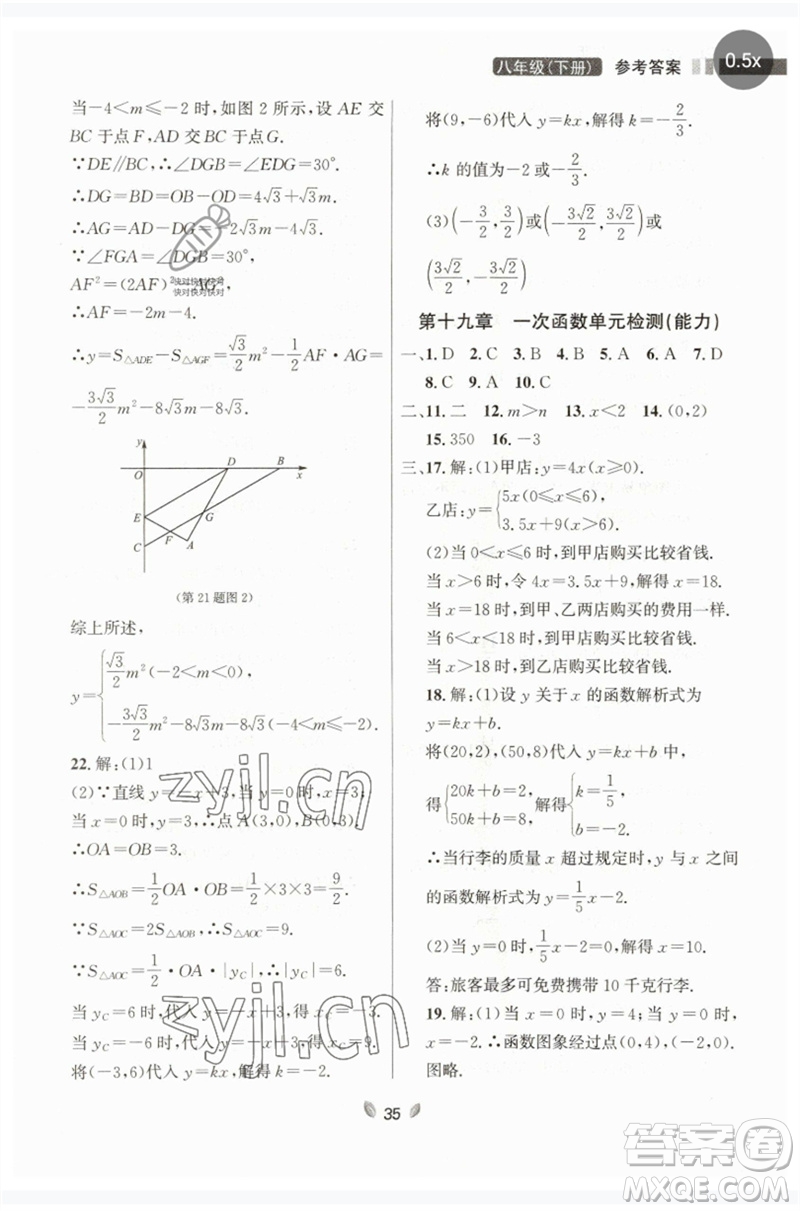 八年级(下册) 参考答案
0.5x
当-4<m≤-2时,如图2所示,设AE交
BC于点F,AD交BC于点G.
∵DE∥BC,∴∠DGB=∠EDG=30°.
∴DG=BD=OB-OD=4√3+√3m.
∴AG=AD-DG=-2√3m-4√3.
∵∠FGA=∠DGB=30°,
AF²=(2AF)²-AG²
快对快对快对
快对快对快对
∴AF=-2m-4.
∴y=S△ADE-S△AGF=√3/4m²-1/2AF·AG=
-3√3/2m²-8√3m-8√3.
y
O
D
B
x
E
G
F
A
C
(第21题图2)
综上所述,
y={√3/2m²(-2<m<0),
-3√3/2m²-8√3m-8√3(-4<m≤-2).
22.解:(1)1
(2)∵直线y=-x+3,当y=0时,x=3;
当x=0时,y=3,∴点A(3,0),B(0,3).
∴OA=OB=3.
∴S△AOB=1/2OA·OB=1/2×3×3=9/2.
∵S△AOC=2S△AOB,∴S△AOC=9.
∵S△AOC=1/2·OA·|yC|,∴|yC|=6.
当yC=6时,代入y=-x+3,得x=-3.
当yC=-6时,代入y=-x+3,得x=9.
将(-3,6)代入y=kx,解得k=-2.
将(9,-6)代入y=kx,解得k=-2/3.
∴k的值为-2或-2/3.
(3)(-3/2,3/2)或(-3√2/2,3√2/2)或
(3√2/2,-3√2/2)
第十九章 一次函数单元检测(能力)
一、1.D 2.C 3.B 4.B 5.A 6.A 7.D
8.C 9.A 10.C
二、11.二 12.m>n 13.x<2 14.(0,2)
15.350 16.-3
三、17.解:(1)甲店:y=4x(x≥0);
乙店:y={5x(0≤x≤6),
3.5x+9(x>6).
(2)当0<x≤6时,到甲店购买比较省钱.
当x>6时,令4x=3.5x+9,解得x=18.
当x=18时,到甲、乙两店购买的费用一样.
当6<x<18时,到甲店购买比较省钱.
当x>18时,到乙店购买比较省钱.
18.解:(1)设y关于x的函数解析式为
y=kx+b.
将(20,2),(50,8)代入y=kx+b中,
得{20k+b=2,50k+b=8,解得{k=1/5,b=-2.
∴当行李的质量x超过规定时,y与x之间
的函数解析式为y=1/5x-2.
(2)当y=0时,1/5x-2=0,得x=10.
答:旅客最多可免费携带10千克行李.
19.解:(1)当x=0时,y=4;当y=0时,
x=-2.∴函数图象经过点(0,4),(-2,0).
图略.
zyjl.cn
zyjl.cn
35
答案圈
MXQE.COM